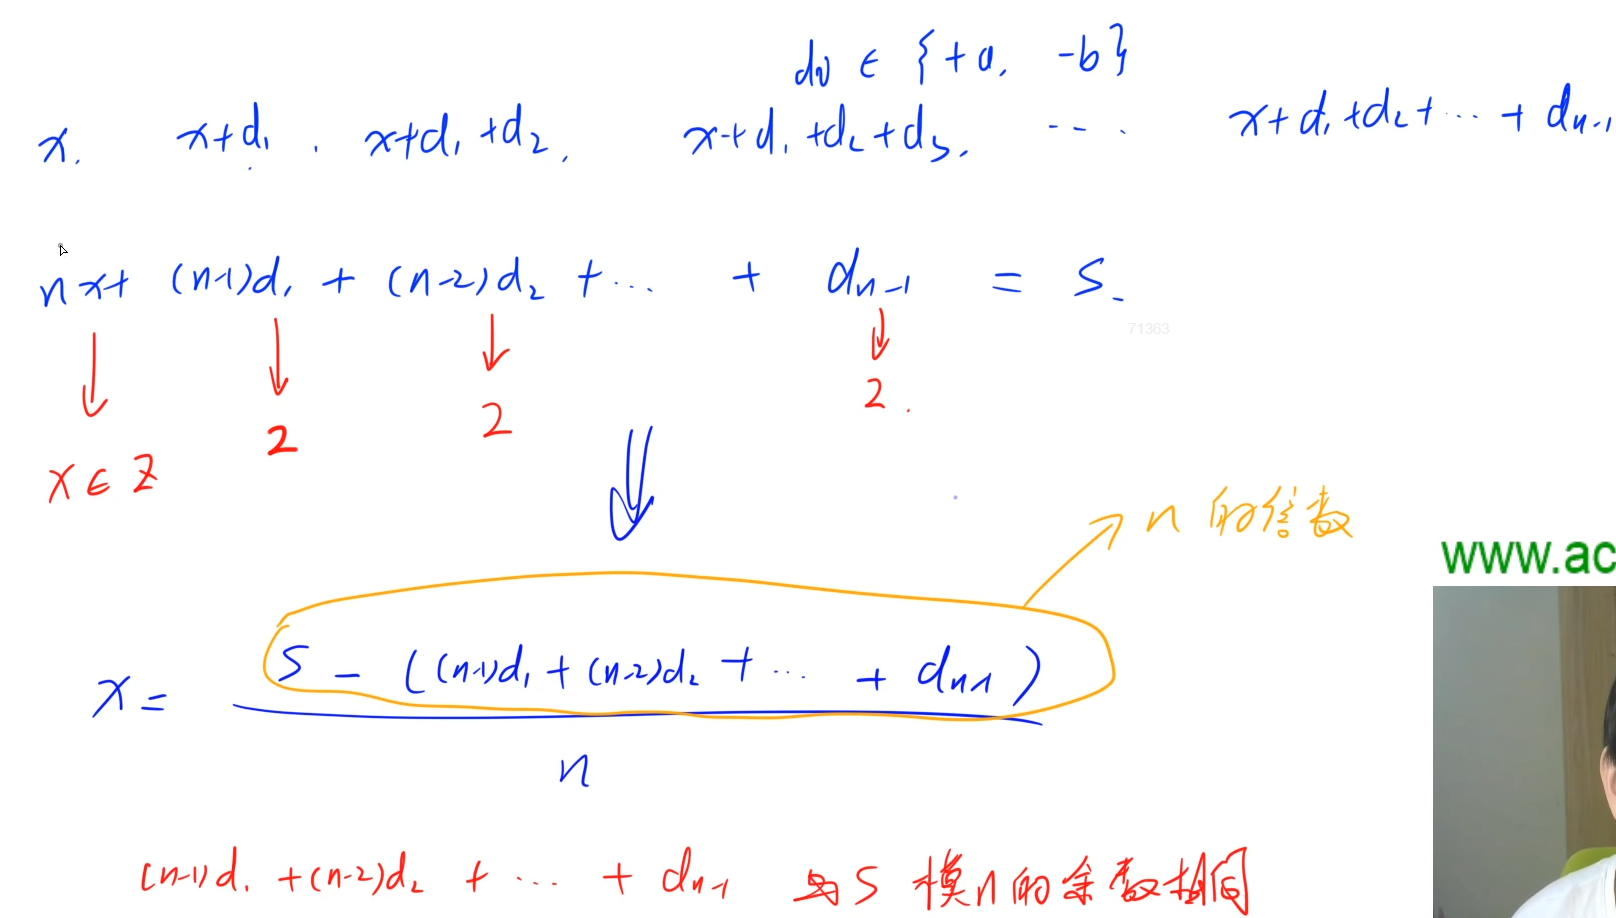 di ∈ {+a, -b}
x, x+d₁, x+d₁+d₂, x+d₁+d₂+d₃, ... x+d₁+d₂+...+dₙ₋₁
nx+(n-1)d₁+(n-2)d₂+...+dₙ₋₁ = S
71363
2
2 2
x∈Z
n的倍数
www.ac
S-((n-1)d₁+(n-2)d₂+...+dₙ₋₁)
x=
n
(n-1)d₁+(n-2)d₂+...+dₙ₋₁ 与S模n的余数相同